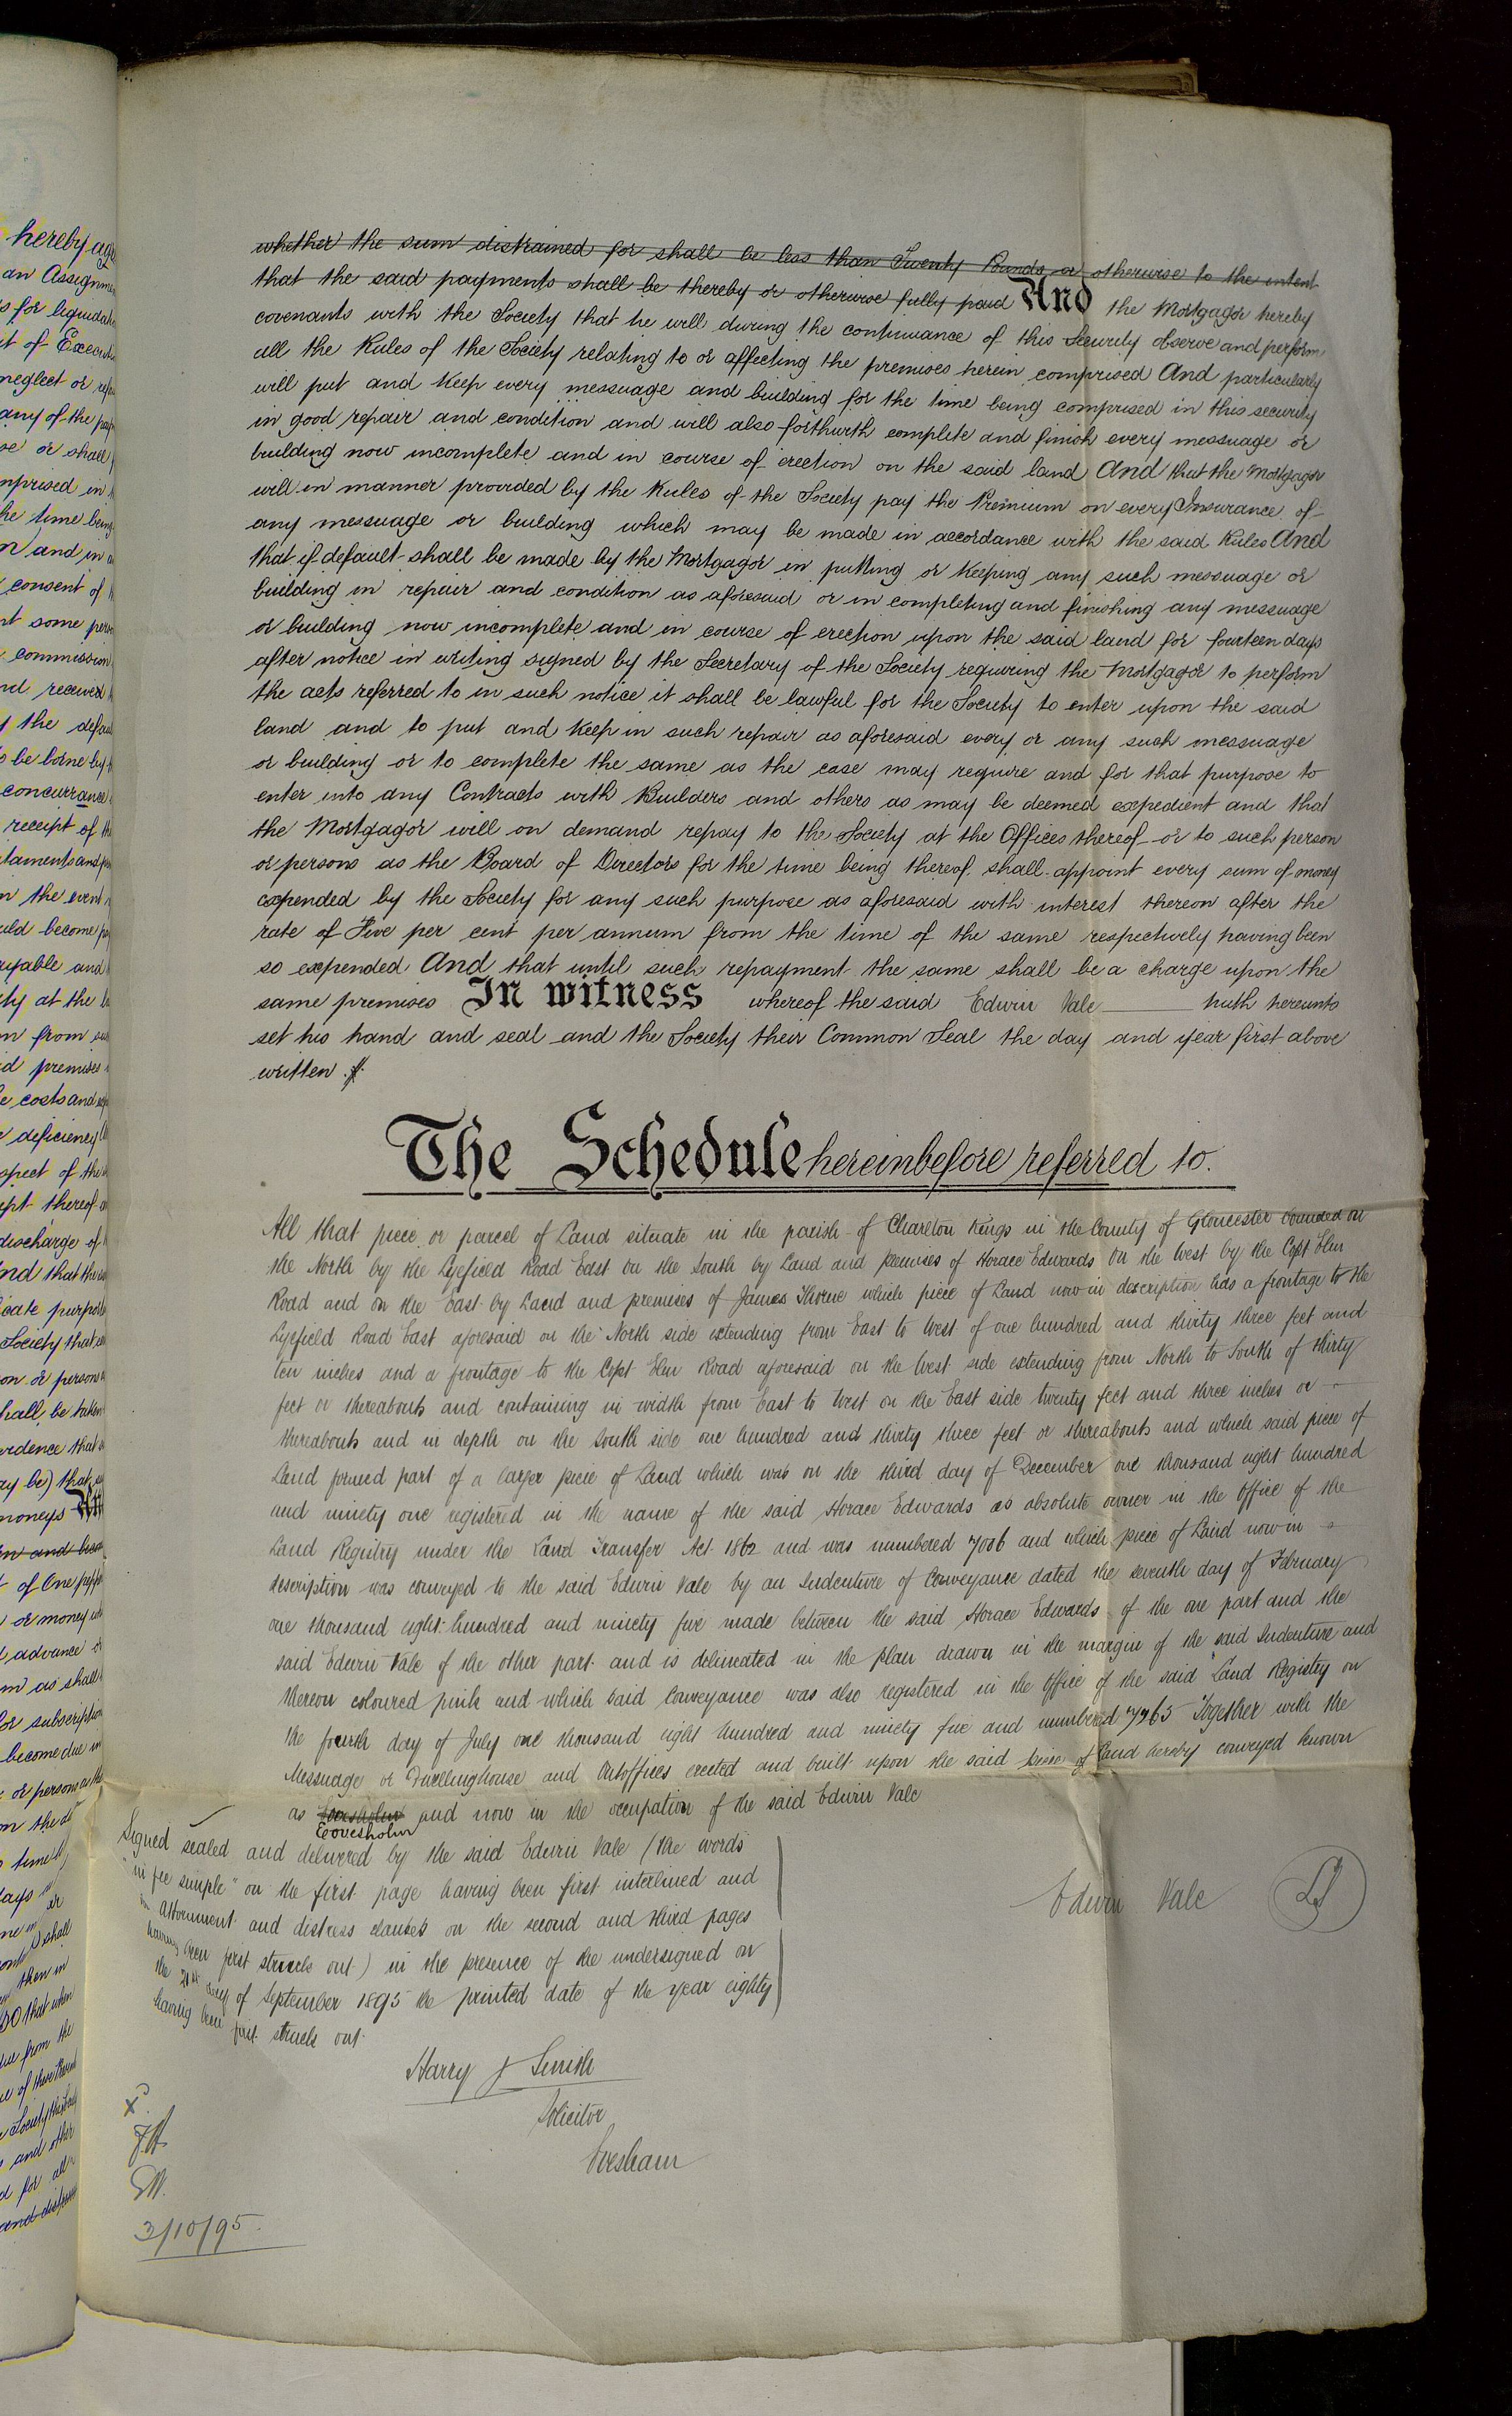 whether the sum distrained for shall be less than Twenty Pounds or otherwise to the intent
that the said payments shall be thereby or otherwise fully paid And the Mortgagor hereby
covenants with the Society that he will during the continuance of this Security observe and perform
all the Rules of the Society relating to or affecting the premises herein comprised And particularly
will put and keep every messuage and building for the time being comprised in this security
in good repair and condition and will also forthwith complete and finish every messuage or
building now incomplete and in course of erection on the said land And that the Mortgagor
will in manner provided by the Rules of the Society pay the Premium on every Insurance of
any messuage or building which may be made in accordance with the said Rules And
that if default shall be made by the Mortgagor in putting or keeping any such messuage or
building in repair and condition as aforesaid or in completing and finishing any messuage
or building now incomplete and in course of erection upon the said land for fourteen days
after notice in writing signed by the Secretary of the Society requiring the Mortgagor to perform
the acts referred to in such notice it shall be lawful for the Society to enter upon the said
land and to put and keep in such repair as aforesaid every or any such messuage
or building or to complete the same as the case may require and for that purpose to
enter into any Contracts with Builders and others as may be deemed expedient and that
the Mortgagor will on demand repay to the Society at the Offices thereof or to such person
or persons as the Board of Directors for the time being thereof shall appoint every sum of money
expended by the Society for any such purpose as aforesaid with interest thereon after the
rate of Five per cent per annum from the time of the same respectively having been
so expended And that until such repayment the same shall be a charge upon the
same premises In witness whereof the said Edwin Vale hath hereunto
set his hand and seal and the Society their Common Seal the day and year first above
written
The Schedule hereinbefore referred to.
All that piece or parcel of Land situate in the parish of Charlton Kings in the County of Gloucester bounded on
the North by the Lyefield Road East on the South by Land and premises of Horace Edwards on the West by the Copt Elm
Road and on the East by Land and premises of James Thorne which piece of Land now in description has a frontage to the
Lyefield Road East aforesaid on the North side extending from East to West of one hundred and thirty three feet and
ten inches and a frontage to the Copt Elm Road aforesaid on the West side extending from North to South of thirty
feet or thereabouts and containing in width from East to West on the East side twenty feet and three inches or
thereabouts and in depth on the South side one hundred and thirty three feet or thereabouts and which said piece of
Land formed part of a larger piece of Land which was on the third day of December one thousand eight hundred
and ninety one registered in the name of the said Horace Edwards as absolute owner in the Office of the
Land Registry under the Land Transfer Act 1862 and was numbered 7006 and which piece of Land now in
description was conveyed to the said Edwin Vale by an Indenture of Conveyance dated the seventh day of February
one thousand eight hundred and ninety five made between the said Horace Edwards of the one part and the
said Edwin Vale of the other part and is delineated in the plan drawn in the margin of the said Indenture and
thereon coloured pink and which said Conveyance was also registered in the Office of the said Land Registry on
the fourth day of July one thousand eight hundred and ninety five and numbered 7265 Together with the
Messuage or Dwellinghouse and Outoffices erected and built upon the said piece of Land hereby conveyed known
as and now in the occupation of the said Edwin Vale
Eovesholm
Signed sealed and delivered by the said Edwin Vale (the words
"in fee simple" on the first page having been first interlined and
attornment and distress clauses on the second and third pages
having been first struck out) in the presence of the undersigned on
the 21st day of September 1895 the printed date of the year eighty
having been first struck out.
Edwin Vale
LS
Harry J Smith
Solicitor
Evesham
3/10/95.